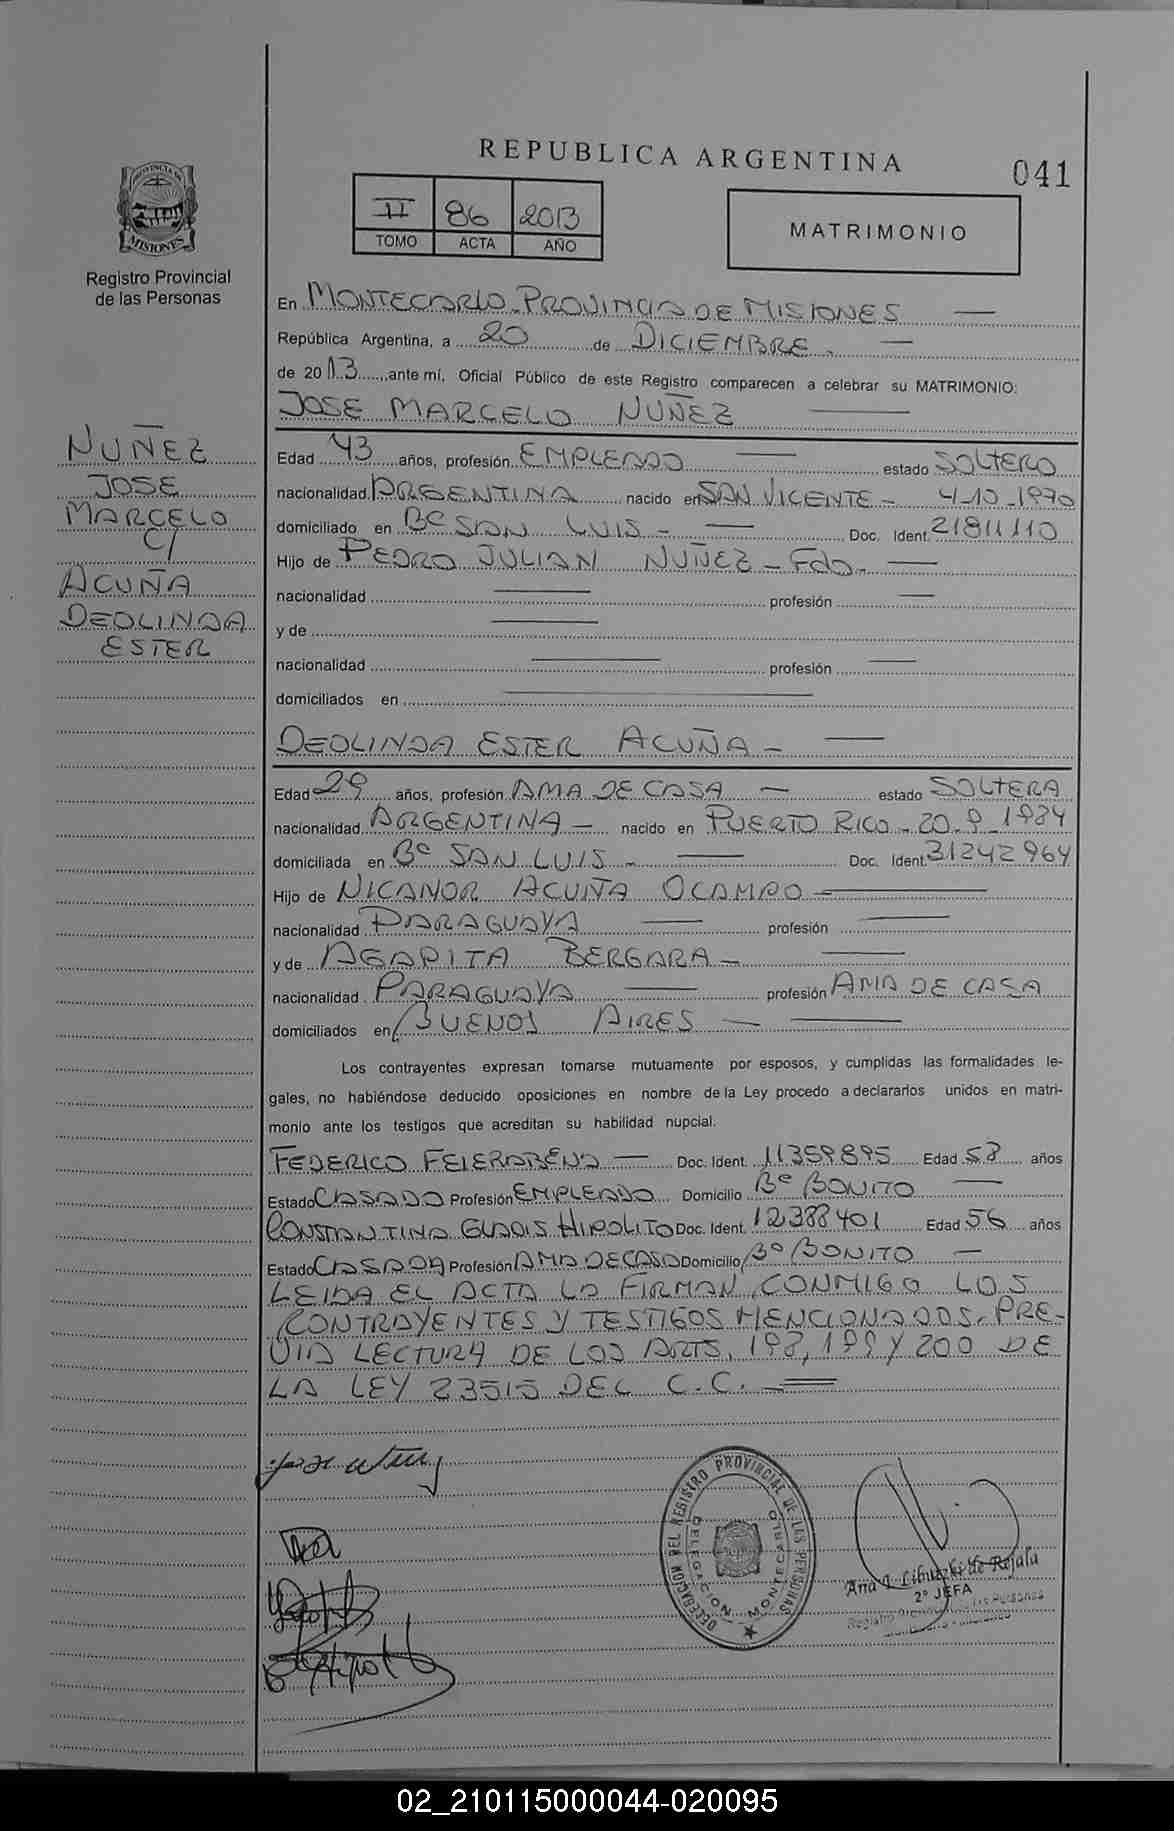 REPUBLICA ARGENTINA
041
PROVINCIA DE
MISIONES
Registro Provincial
de las Personas
II 86 2013
TOMO ACTA AÑO
MATRIMONIO
En MONTECARLO - PROVINCIA DE MISIONES —
República Argentina, a 20 de DICIEMBRE. —
de 2013, ante mí, Oficial Público de este Registro comparecen a celebrar su MATRIMONIO:
JOSE MARCELO NUÑEZ —
NUÑEZ
JOSE
MARCELO
C/
ACUÑA
DEOLINDA
ESTER
Edad 43 años, profesión EMPLEADO — estado SOLTERO
nacionalidad ARGENTINA nacido en SAN VICENTE - 4-10-1970
domiciliado en Bº SAN LUIS - — Doc. Ident. 21811110
Hijo de PEDRO JULIAN NUÑEZ - Fdo. —
nacionalidad — profesión —
y de —
nacionalidad — profesión —
domiciliados en —
DEOLINDA ESTER ACUÑA - —
Edad 29 años, profesión AMA DE CASA — estado SOLTERA
nacionalidad ARGENTINA - nacido en PUERTO RICO - 20-9-1984
domiciliada en Bº SAN LUIS - — Doc. Ident. 31242964
Hijo de NICANOR ACUÑA OCAMPO —
nacionalidad PARAGUAYA — profesión —
y de AGAPITA BERGARA - —
nacionalidad PARAGUAYA — profesión AMA DE CASA
domiciliados en BUENOS AIRES - —
Los contrayentes expresan tomarse mutuamente por esposos, y cumplidas las formalidades le-
gales, no habiéndose deducido oposiciones en nombre de la Ley procedo a declararlos unidos en matri-
monio ante los testigos que acreditan su habilidad nupcial.
FEDERICO FEIERABEND — Doc. Ident. 11359895 Edad 58 años
Estado CASADO Profesión EMPLEADO Domicilio Bº BONITO —
CONSTANTINA GLADIS HIPOLITO Doc. Ident. 12388401 Edad 56 años
Estado CASADA Profesión AMA DE CASA Domicilio Bº BONITO —
LEIDA EL ACTA LA FIRMAN CONMIGO LOS
CONTRAYENTES Y TESTIGOS MENCIONADOS, PRE-
VIA LECTURA DE LOS ARTS. 198, 199 Y 200 DE
LA LEY 23515 DEL C.C. —
DELEGACION DEL REGISTRO PROVINCIAL DE LAS PERSONAS
DELEGACION MONTECARLO
2º JEFA
Registro Provincial de las Personas
02_210115000044-020095